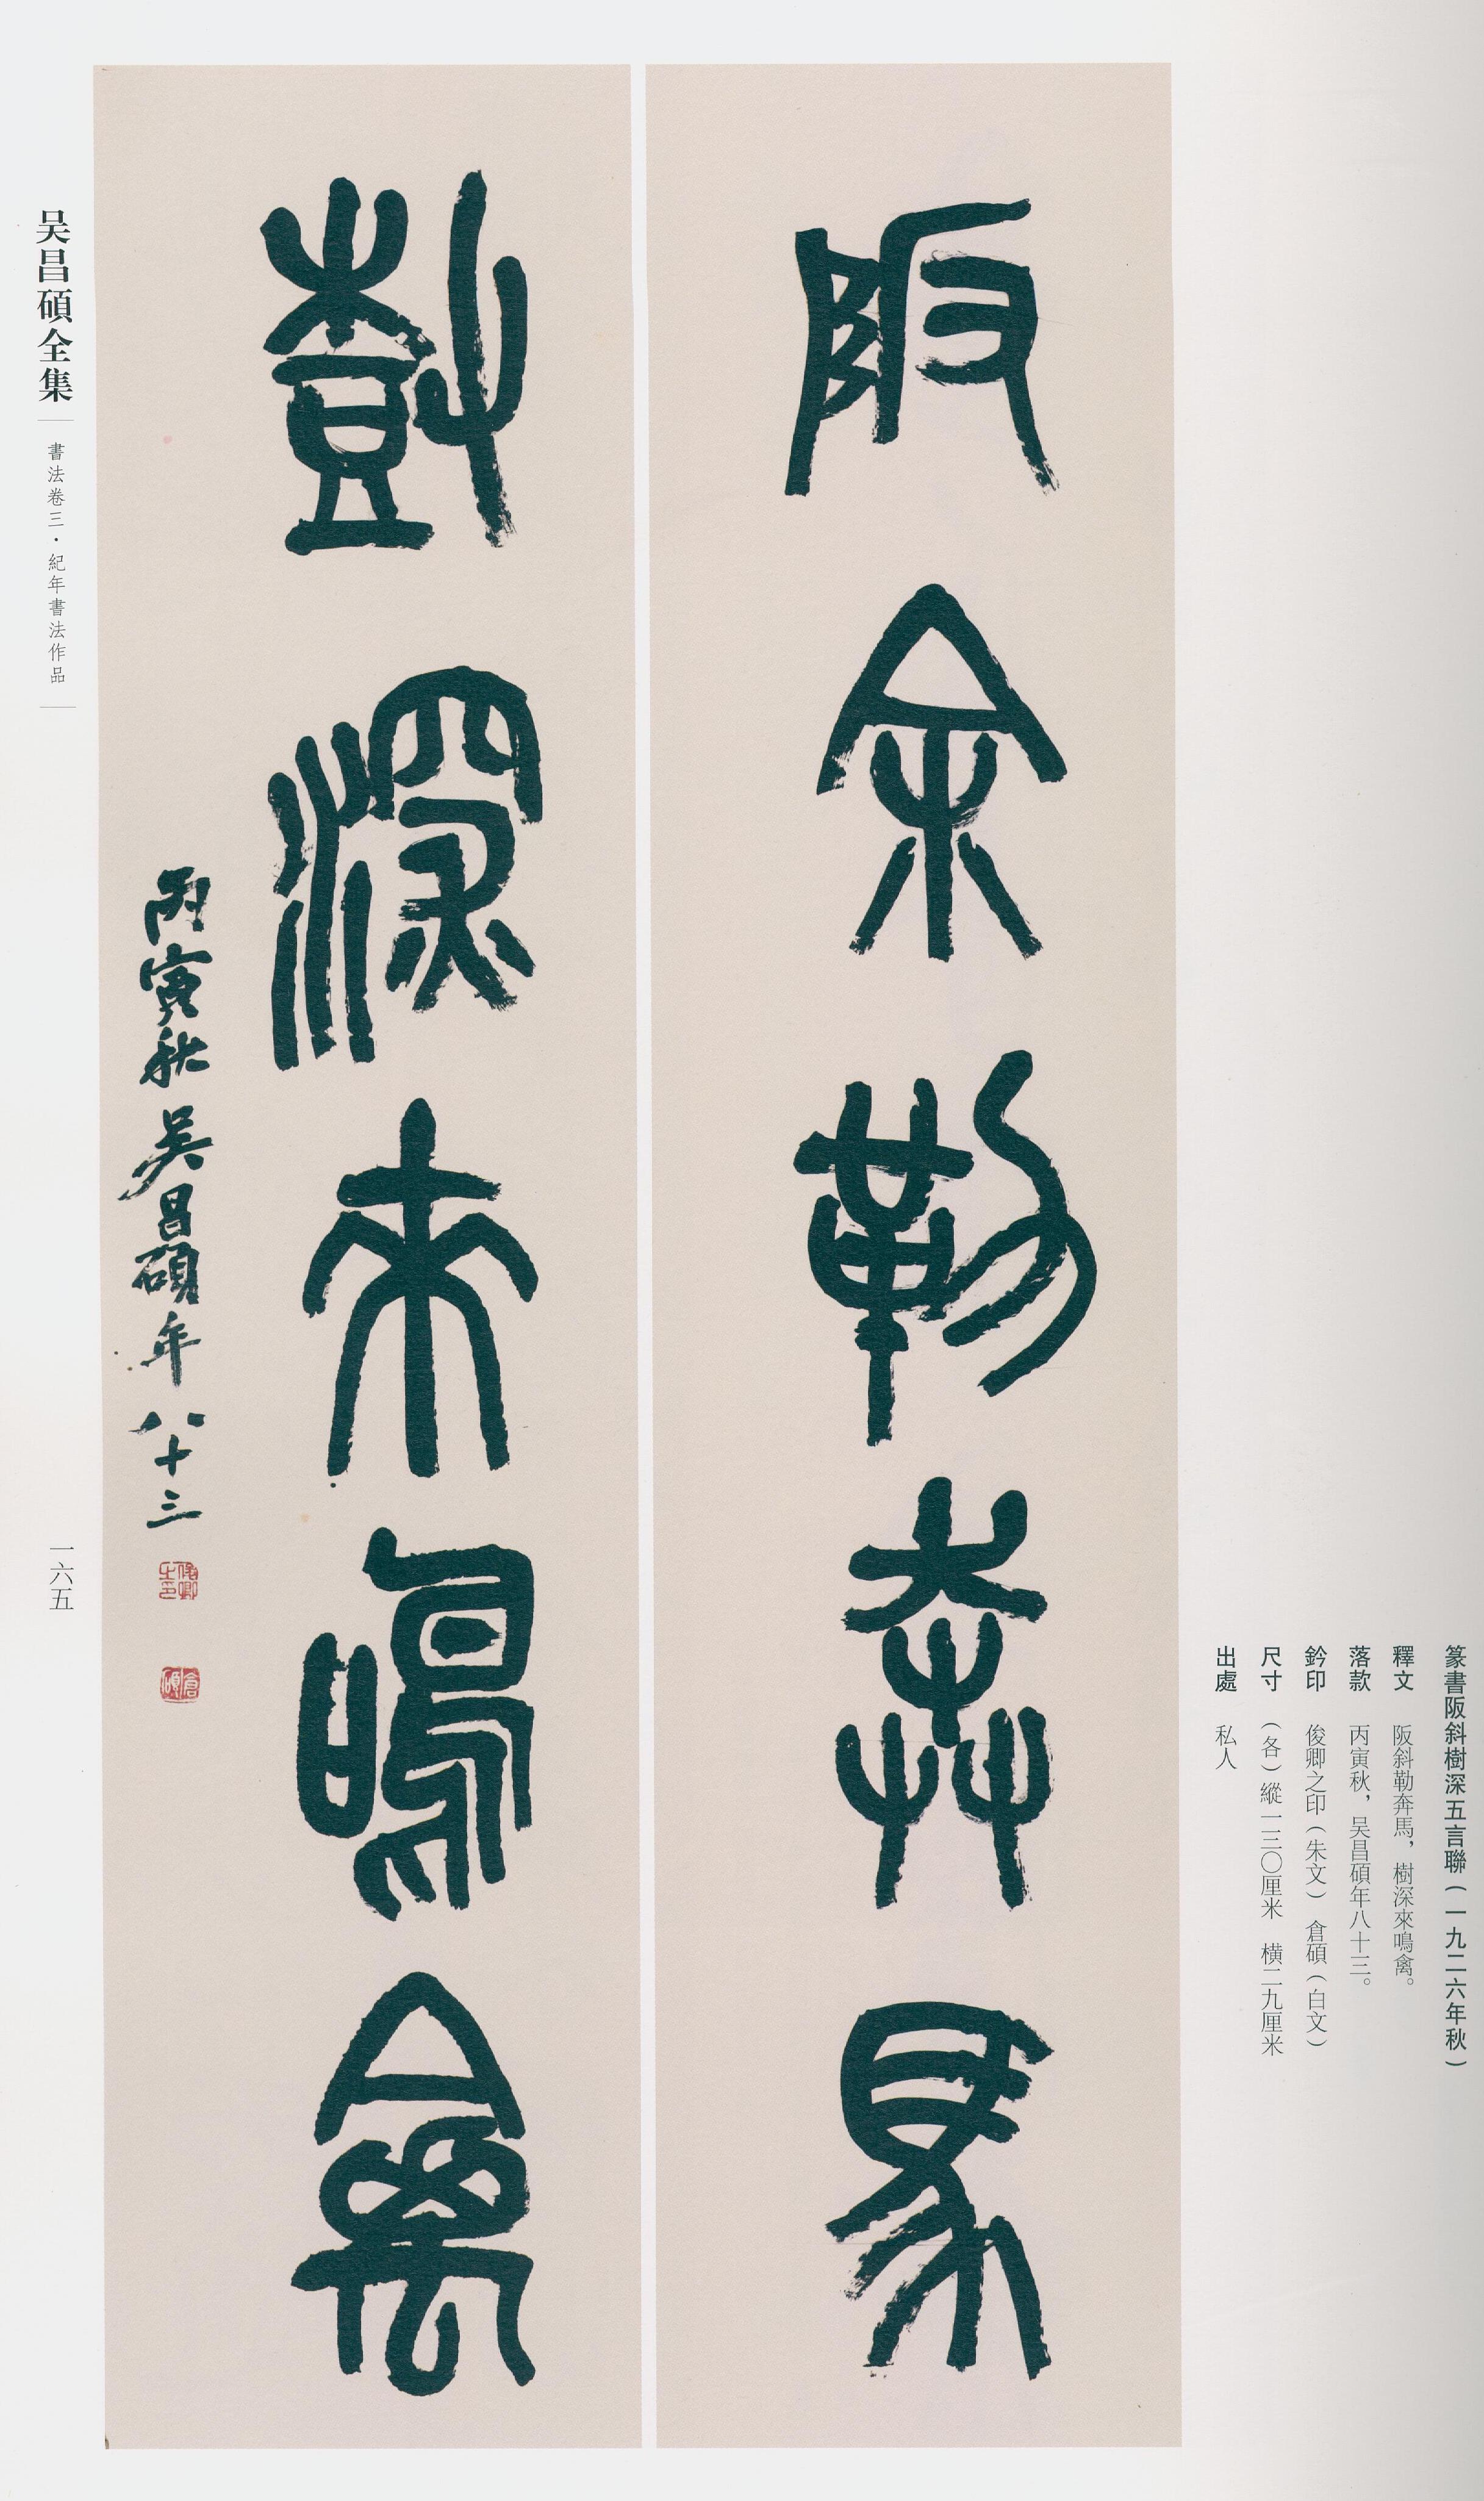 篆書阪斜樹深五言聯(一九二六年秋)
釋文 阪斜勒奔馬,樹深來鳴禽。
落款 丙寅秋,吴昌碩年八十三。
鈐印 俊卿之印(朱文) 倉碩(白文)
尺寸 (各)縱一三〇厘米 橫二九厘米
出處 私人
阪斜勒奔馬
樹深來鳴禽
丙寅秋吴昌碩年八十三
俊卿之印
倉碩
吴昌碩全集
書法卷三・紀年書法作品
一六五